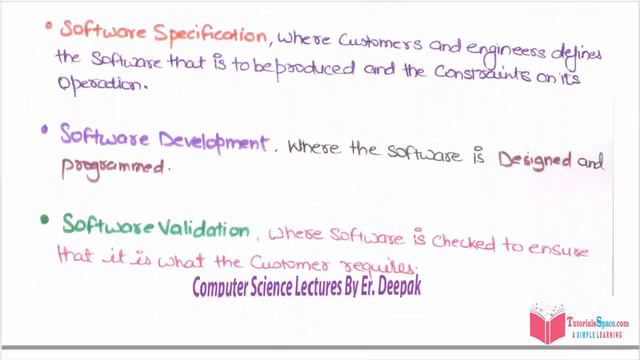 • Software Specification, where Customers and engineers defines
the Software that is to be produced and the Constraints on its
Operation.
• Software Development, Where the Software is Designed and
programmed.
• Software Validation, where Software is checked to ensure
that it is what the Customer requires.
Computer Science Lectures By Er. Deepak
TutorialsSpace.com
A SIMPLE LEARNING